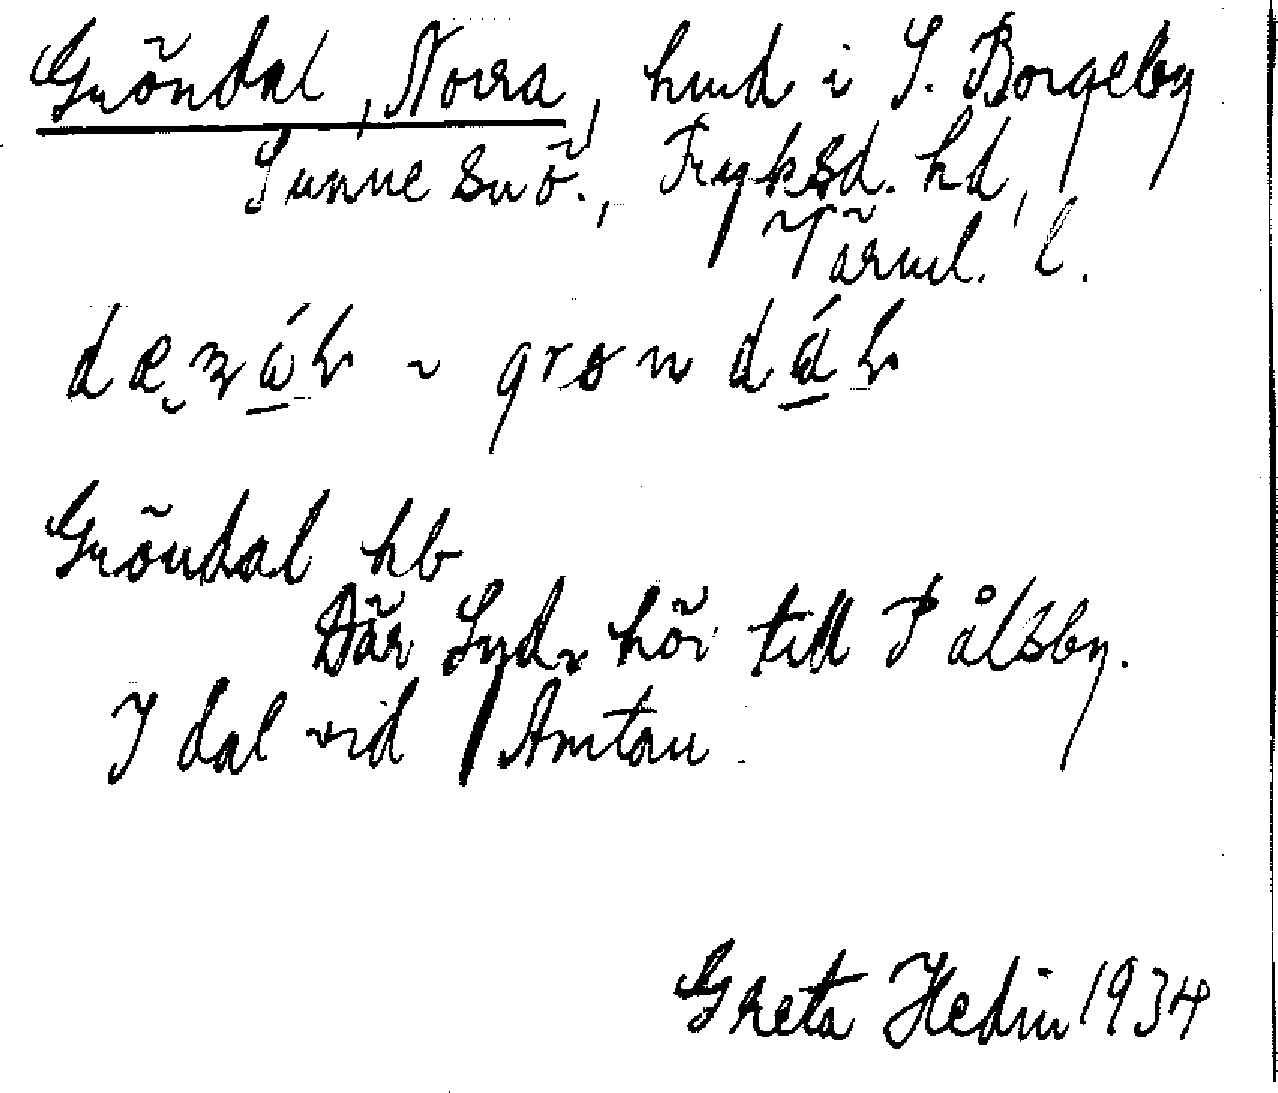 Gröndal, Norra, hmd i S. Borgeby
Sunne snö., Fryksd. hd,
Värml. l.
grøndál
Gröndal hb
Där Syd. hör till Pålsby.
I dal vid Amtan
Greta Hedin 1934